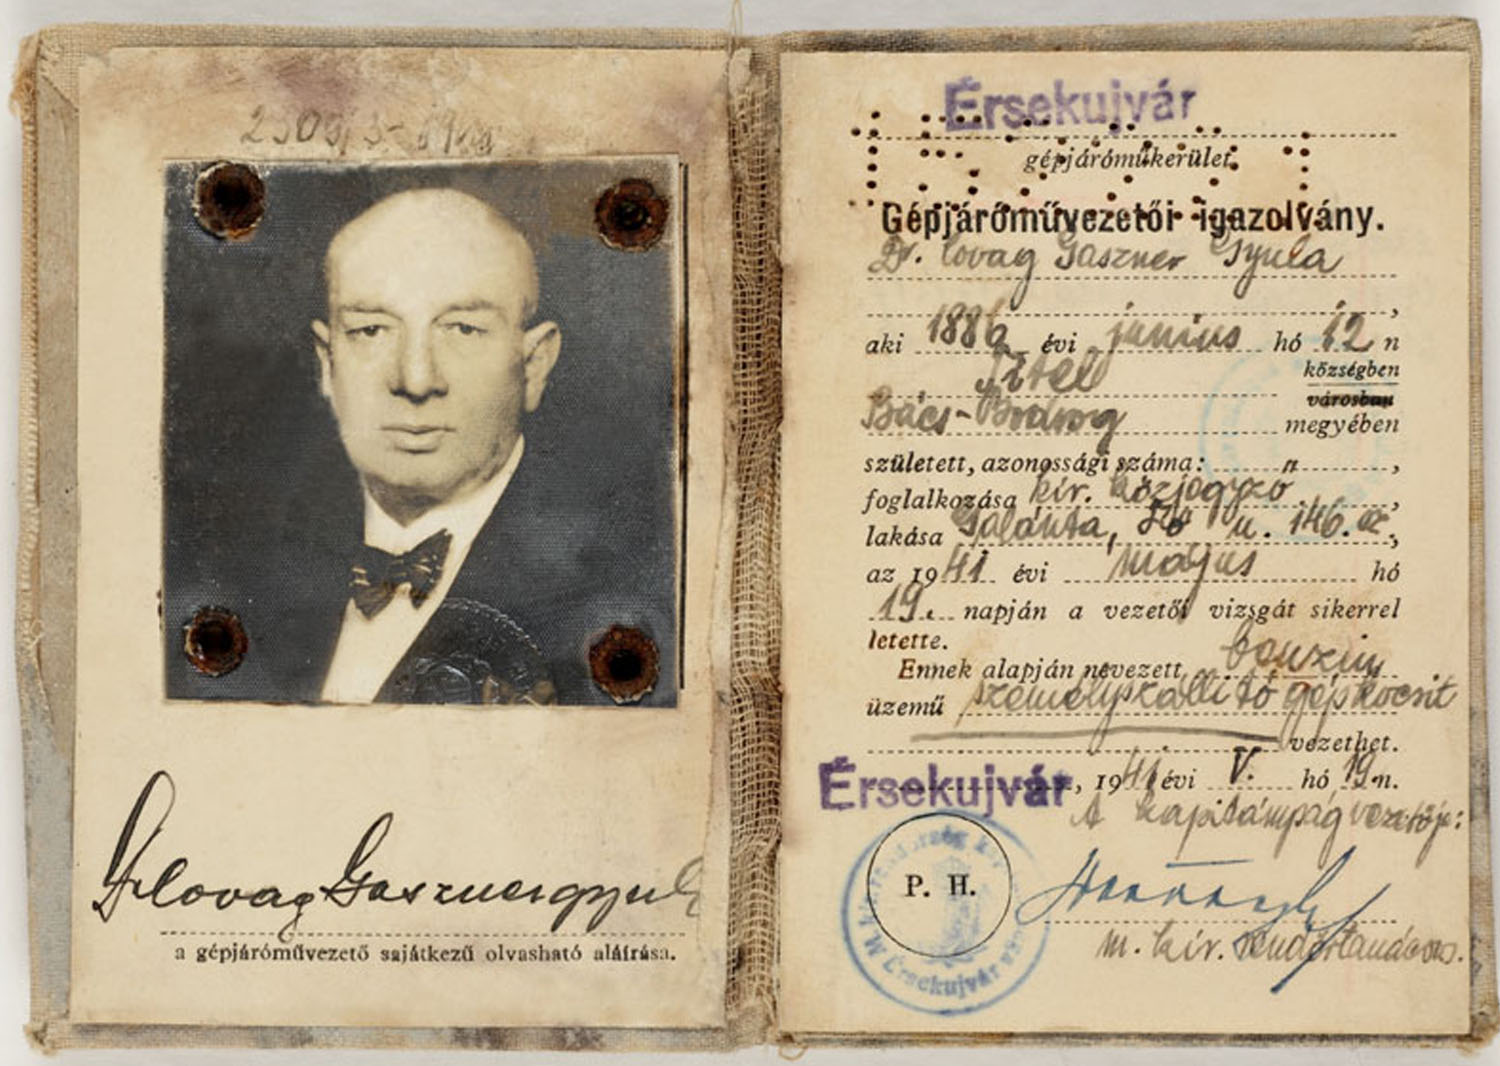 Dr lovag Gaszner Gyula
a gépjáróművezető sajátkezű olvasható aláírása.
Érsekujvár
gépjáróműkerület
Gépjáróművezetői igazolvány.
Dr. lovag Gaszner Gyula
aki 1886 évi junius hó 12 n
Titel községben
városban
Bács-Bodrog megyében
született, azonossági száma: „ ,
foglalkozása kir. közjegyző ,
lakása Galánta, Fő u. 146. sz.,
az 1941 évi május hó
19. napján a vezetői vizsgát sikerrel
letette.
Ennek alapján nevezett benzin
üzemű személyszállító gépkocsit
vezethet.
Érsekujvár, 1941 évi V. hó 19 n.
A kapitányság vezetője:
P. H.
m. kir. rendőrtanácsos.